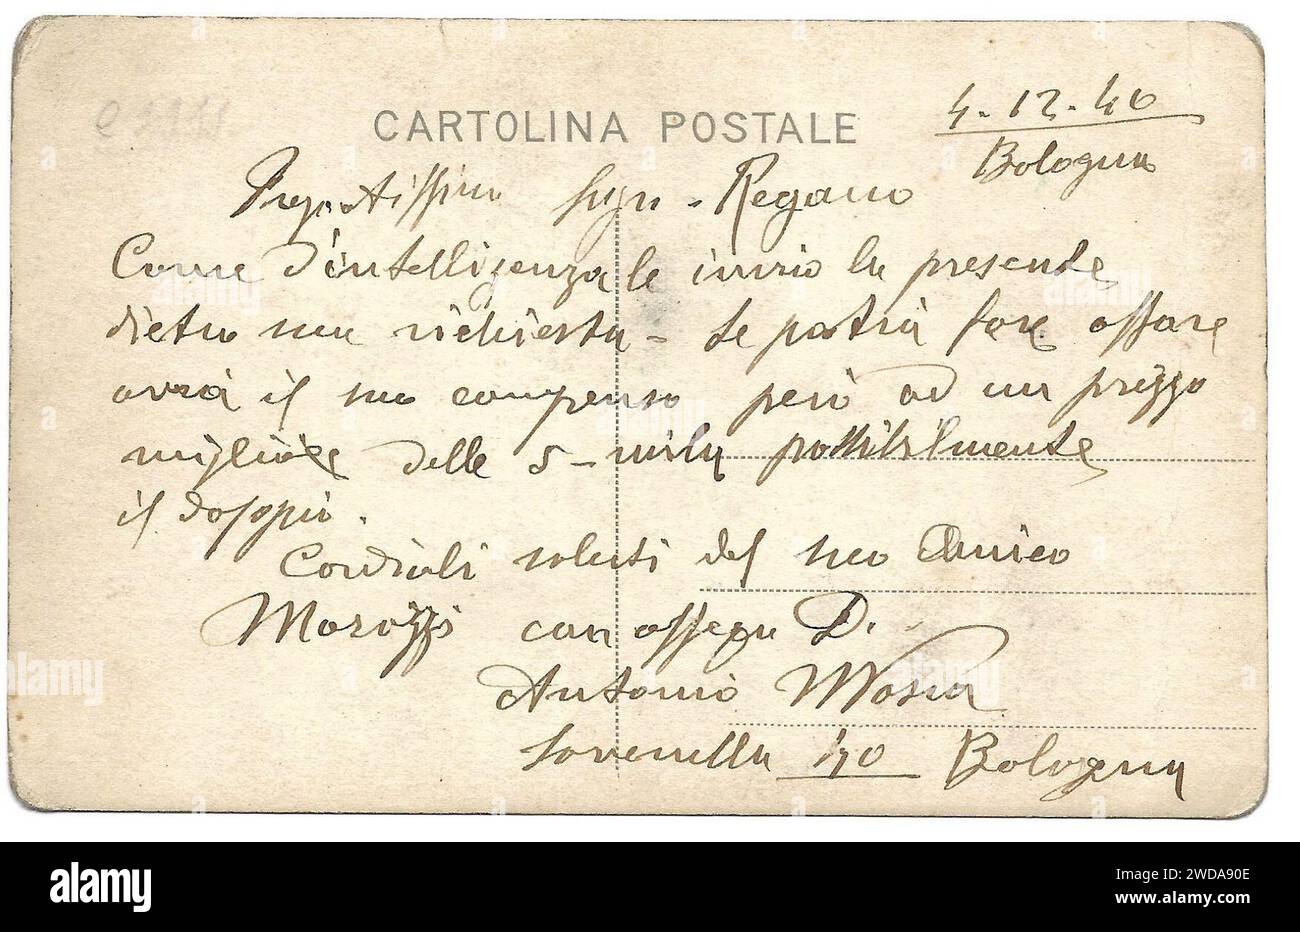 4-12-46
CARTOLINA POSTALE
Bologna
Pregiatissimo Sign - Regano
Come d'intelligenza le invio la presente
dietro sua richiesta - se potrà fare affare
avrà il suo compenso però ad un prezzo
migliore delle 5 - mila possibilmente
il doppio.
Cordiali saluti dal suo Amico
con
Antonio
Bologna
alamy
Image ID: 2WDA90E
www.alamy.com